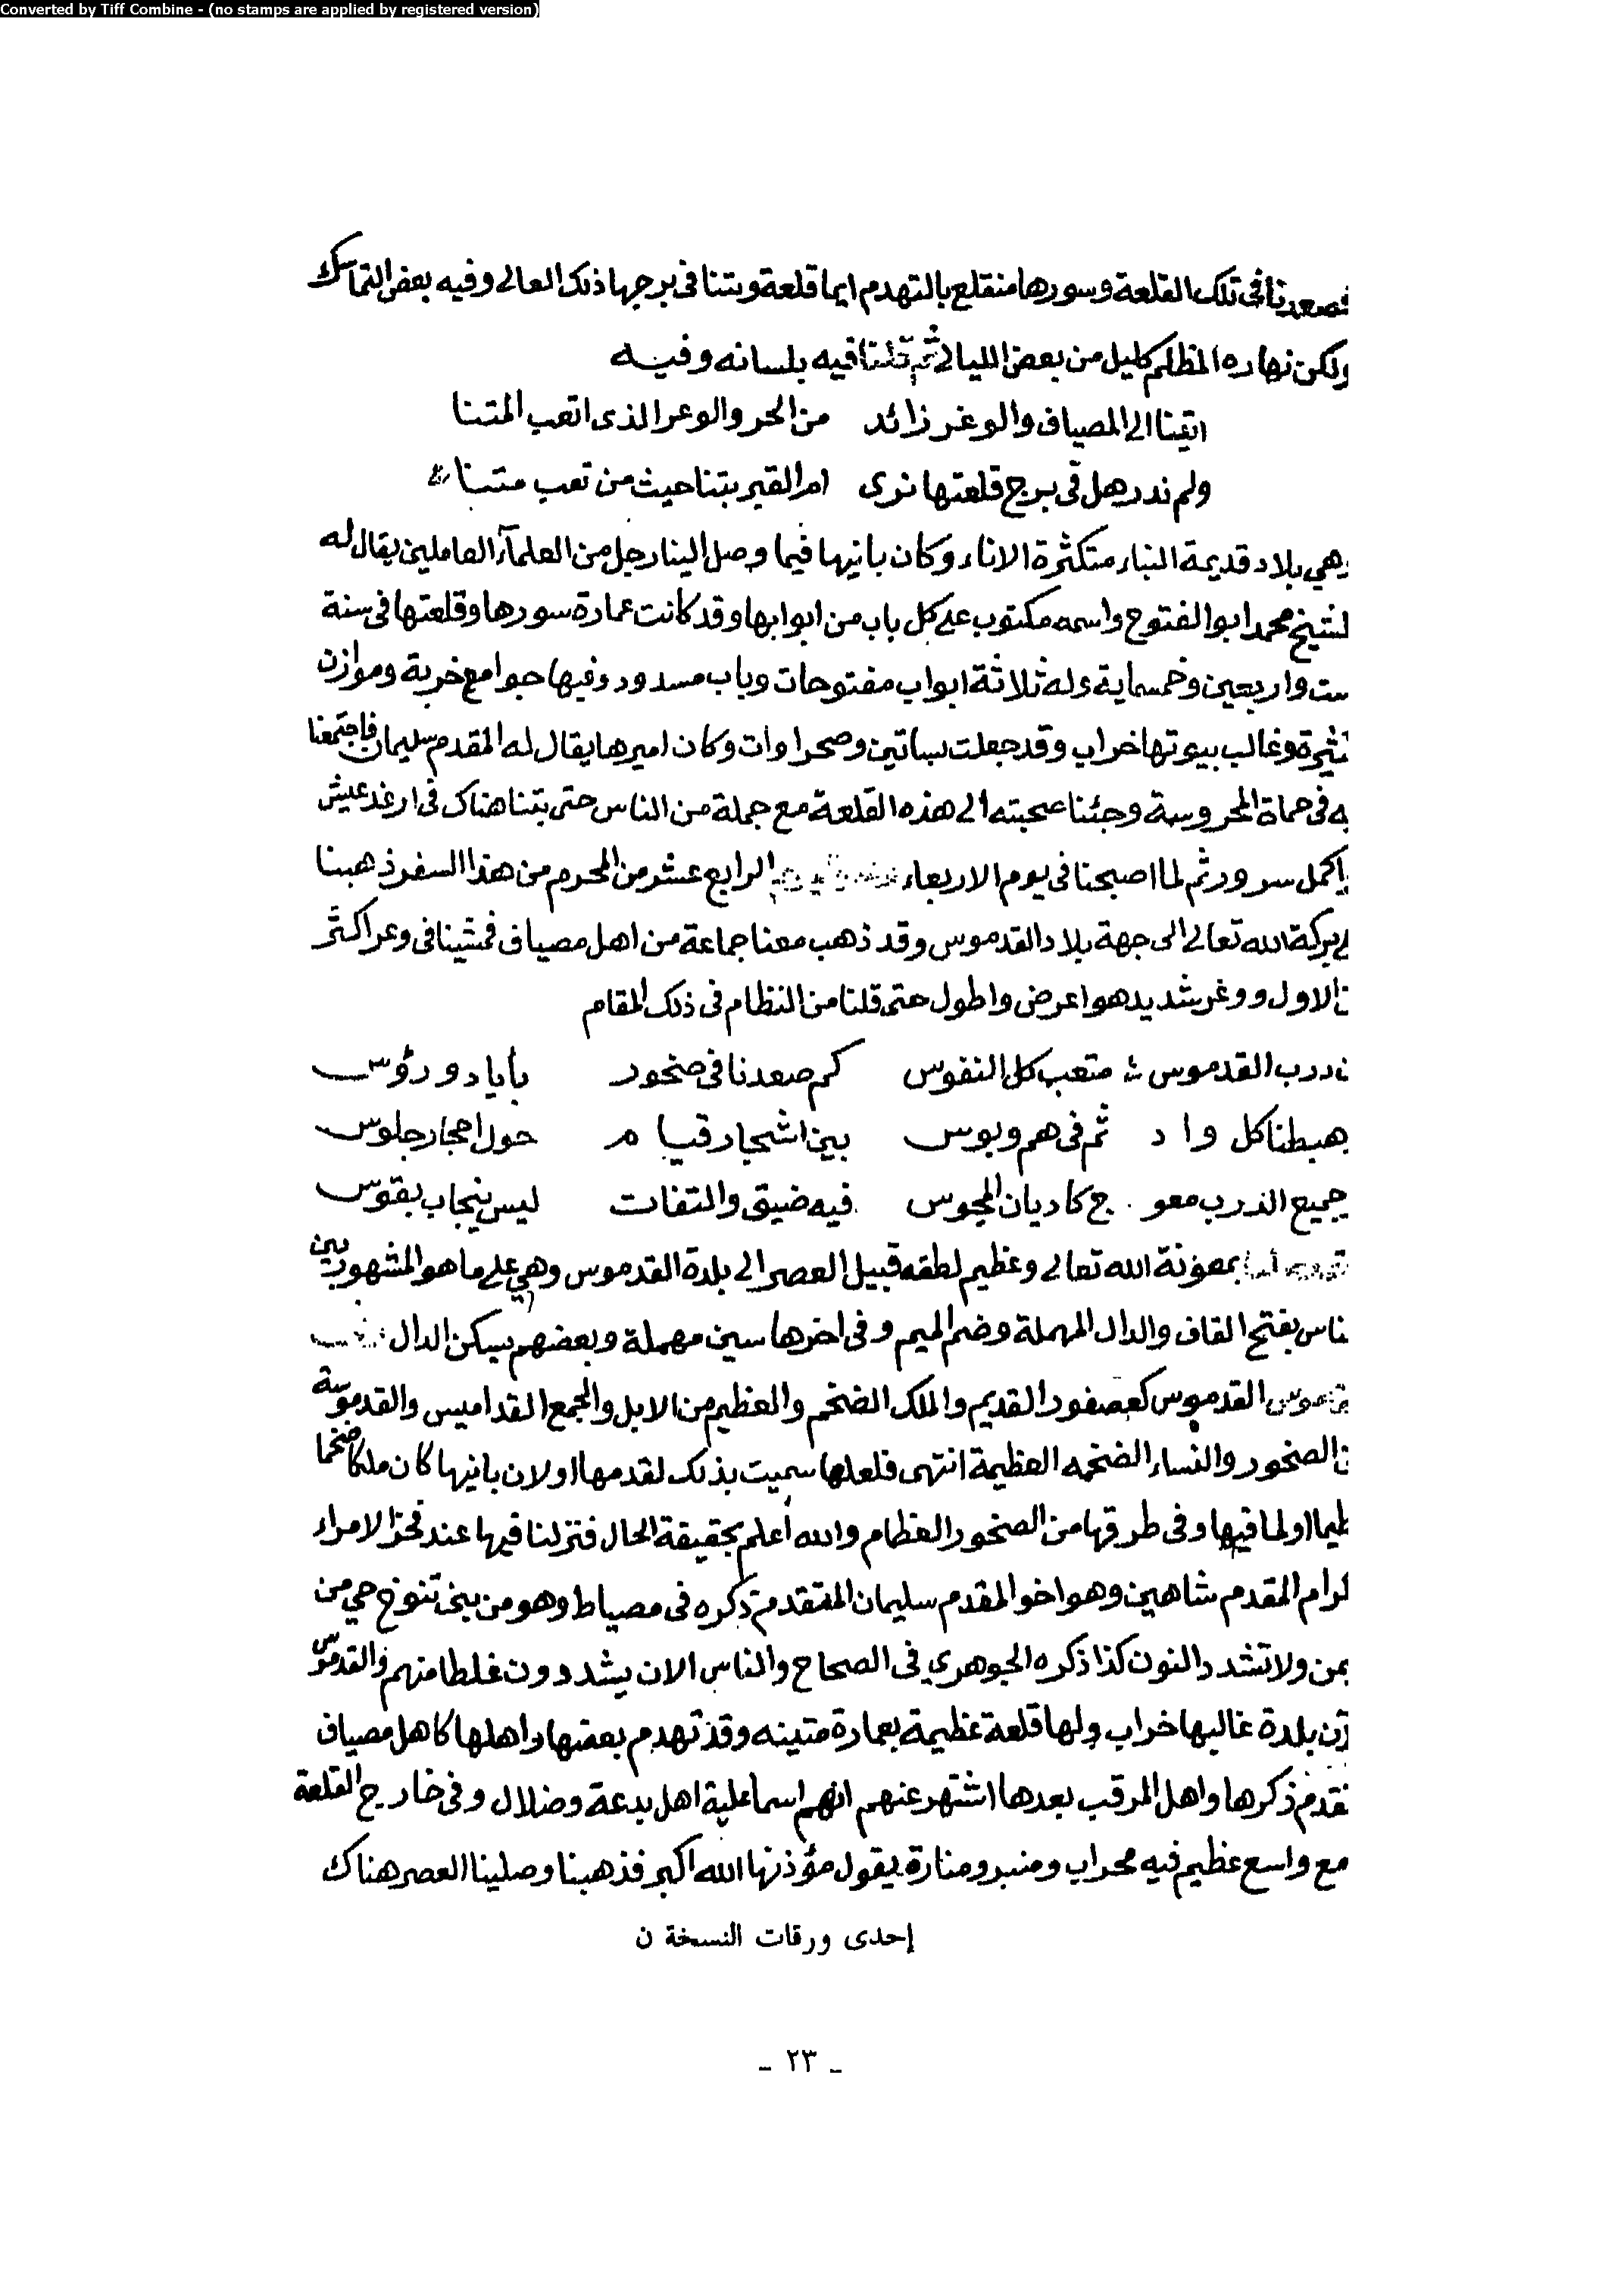 Converted by Tiff Combine - (no stamps are applied by registered version)
فصعدنا في تلك القلعة وسورها منقلع بالتهدم ايما قلعة وبتنا في برجها ذلك العالي وفيه بعض التماسك
ولكن نهاره المظلم كليل من بعض الليالي ثم قلنا فيه بلسانه وفيه
اتينا الى المصياف والوغر زائد من الحر والوعر الذى اتعب المتنا
ولم ندر هل في برج قلعتها نرى ام القبر بتنا حيث من تعب متنا
وهي بلاد قديمة البناء متكثرة الاناء وكان بانيها فيما وصل الينا رجل من العلمآء العاملين يقال له
لشيخ محمد ابو الفتوح واسمه مكتوب على كل باب من ابوابها وقد كانت عمارة سورها وقلعتها في سنة
ست واربعين وخمسماية وله ثلاثة ابواب مفتوحات وباب مسدود وفيها جوامع خربة وموازن
كثيرة وغالب بيوتها خراب وقد جعلت بساتين وصحراوات وكان اميرها يقال له المقدم سليمان فاجتمعنا
به في حماة المحروسة وجئنا صحبته الى هذه القلعة مع جملة من الناس حتى بتنا هناك في ارغد عيش
واكمل سرور ثم لما اصبحنا في يوم الاربعاء الرابع عشر من المحرم من هذا السفر ذهبنا
لى بركة الله تعالى الى جهة بلاد القدموس وقد ذهب معنا جماعة من اهل مصياف فمشينا في وعر اكثر
من الاول ووغر شديد هو اعرض واطول حتى قلنا من النظام في ذلك المقام
ن درب القدموس متعب كل النفوس كم صعدنا في صخور بأياد ورؤس
هبطنا كل واد ثم في هم وبوس بين اشجار قيام حول احجار جلوس
جميع الدرب معو ج كاديان المجوس فيه ضيق والتفات ليس ينجاب بقوس
بمعونة الله تعالى وعظيم لطفه قبيل العصر الى بلدة القدموس وهي على ما هو المشهور بين
ناس بفتح القاف والدال المهملة وضم الميم وفي اخرها سين مهملة وبعضهم يسكن الدال
القدموس كعصفور القديم والملك الضخم والعظيم من الابل والجمع القداميس والقدموسة
من الصخور والنساء الضخمه العظيمة انتهى فلعلها سميت بذلك لقدمها او لان بانيها كان ملكا ضخما
ظيما او لما فيها وفي طرقها من الصخور العظام والله أعلم بحقيقة الحال فنزلنا فيها عند فخر الامراء
لكرام المقدم شاهين وهو اخو المقدم سليمان المتقدم ذكره في مصياط وهو من بني تنوخ حي من
يمن ولا تشدد النون كذا ذكره الجوهري في الصحاح والناس الان يشددون غلطا منهم والقدموس
لآن بلدة غالبها خراب ولها قلعة عظيمة بعمارة متينه وقد تهدم بعضها واهلها كاهل مصياف
تقدم ذكرها واهل المرقب بعدها اشتهر عنهم انهم اسماعلية اهل بدعة وضلال وفي خارج القلعة
مع واسع عظيم فيه محراب ومنبر ومنارة يقول مؤذنها الله اكبر فذهبنا وصلينا العصر هناك
إحدى ورقات النسخة ن
ـ ٢٣ ـ